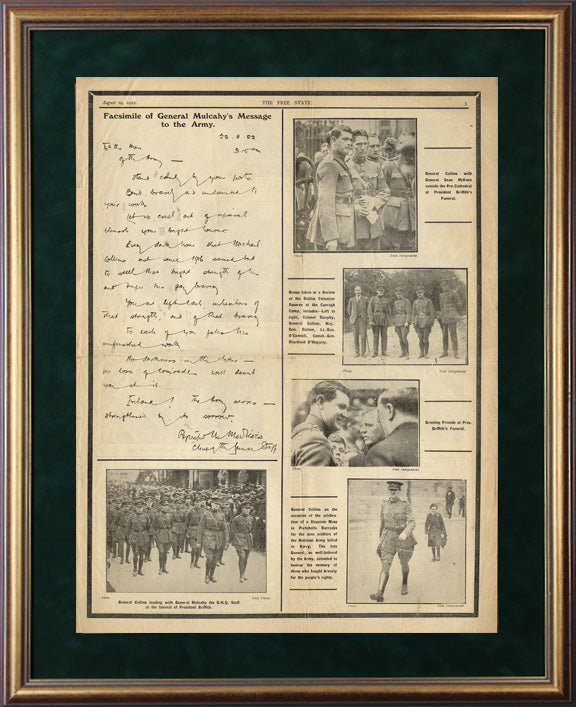 August 29, 1922.
THE FREE STATE
5
Facsimile of General Mulcahy's Message
to the Army.
To the Men
of the Army —
Stand calmly by your posts.
Bend bravely and undaunted to
your work
Let no cruel act of reprisal
blemish your bright honour.
Every dark hour that Michael
Collins met since 1916 seemed but
to steel that bright strength of his
and temper his gay bravery
You are left each inheritors of
that strength, and of that bravery
To each of you falls his
unfinished work
No darkness in the hour —
no loss of comrades will daunt
you at it.
Ireland! The Army serves —
strengthened by its sorrow.
General Collins with
General Sean McKeon
outside the Pro-Cathedral
at President Griffith's
Funeral.
Photo
Irish Independent.
Group taken at a Review
of the Dublin Volunteer
Reserve at the Curragh
Camp, includes—Left to
right, Colonel Dunphy,
General Collins, Maj.-
Gen. Dalton, Lt.-Gen.
O'Connell, Comdt.-Gen.
Diarmuid O'Hegarty.
Photo
Irish Independent.
Greeting Friends at Pres.
Griffith's Funeral.
Photo
Irish Independent.
General Collins on the
occasion of the celebra-
tion of a Requiem Mass
in Portobello Barracks
for the nine soldiers of
the National Army killed
in Kerry. The late
General, so well-beloved
by the Army, attended to
honour the memory of
those who fought bravely
for the people's rights.
Photo
Irish Independent.
Photo
Irish Independent.
General Collins leading with General Mulcahy the G.H.Q. Staff
at the funeral of President Griffith.